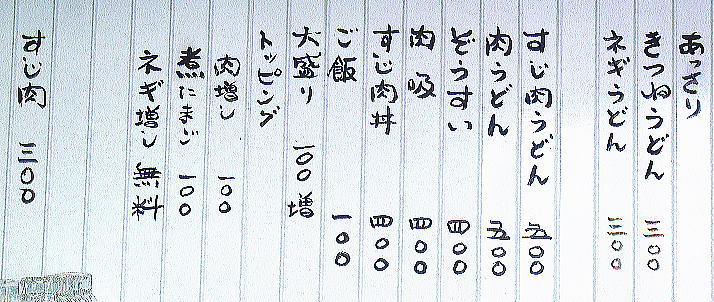 あっさり
きつねうどん 三〇〇
ネギうどん 三〇〇
すじ肉うどん 五〇〇
肉うどん 五〇〇
ぞうすい 四〇〇
肉吸 四〇〇
すじ肉丼 四〇〇
ご飯 一〇〇
大盛り 一〇〇増
トッピング
肉増し 一〇〇
煮たまご 一〇〇
ネギ増し 無料
すじ肉 三〇〇